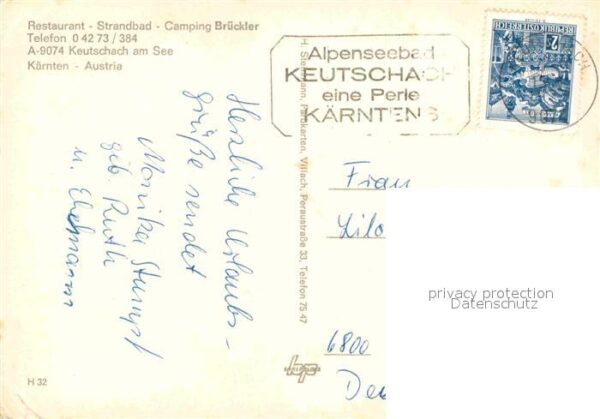 Restaurant - Strandbad - Camping Brückler
Telefon 0 42 73 / 384
A-9074 Keutschach am See
Kärnten - Austria
Alpenseebad
KEUTSCHACH
eine Perle
KÄRNTENS
REPUBLIK ÖSTERREICH
2
H. Steinmann, Parkkarten, Villach, Peraustraße 33, Telefon 75 47
Herzliche Urlaubs-
grüße sendet
Monika Stumpf
geb. Ruth
u. Ehemann
Frau
Lilo
privacy protection
Datenschutz
6800
H 32